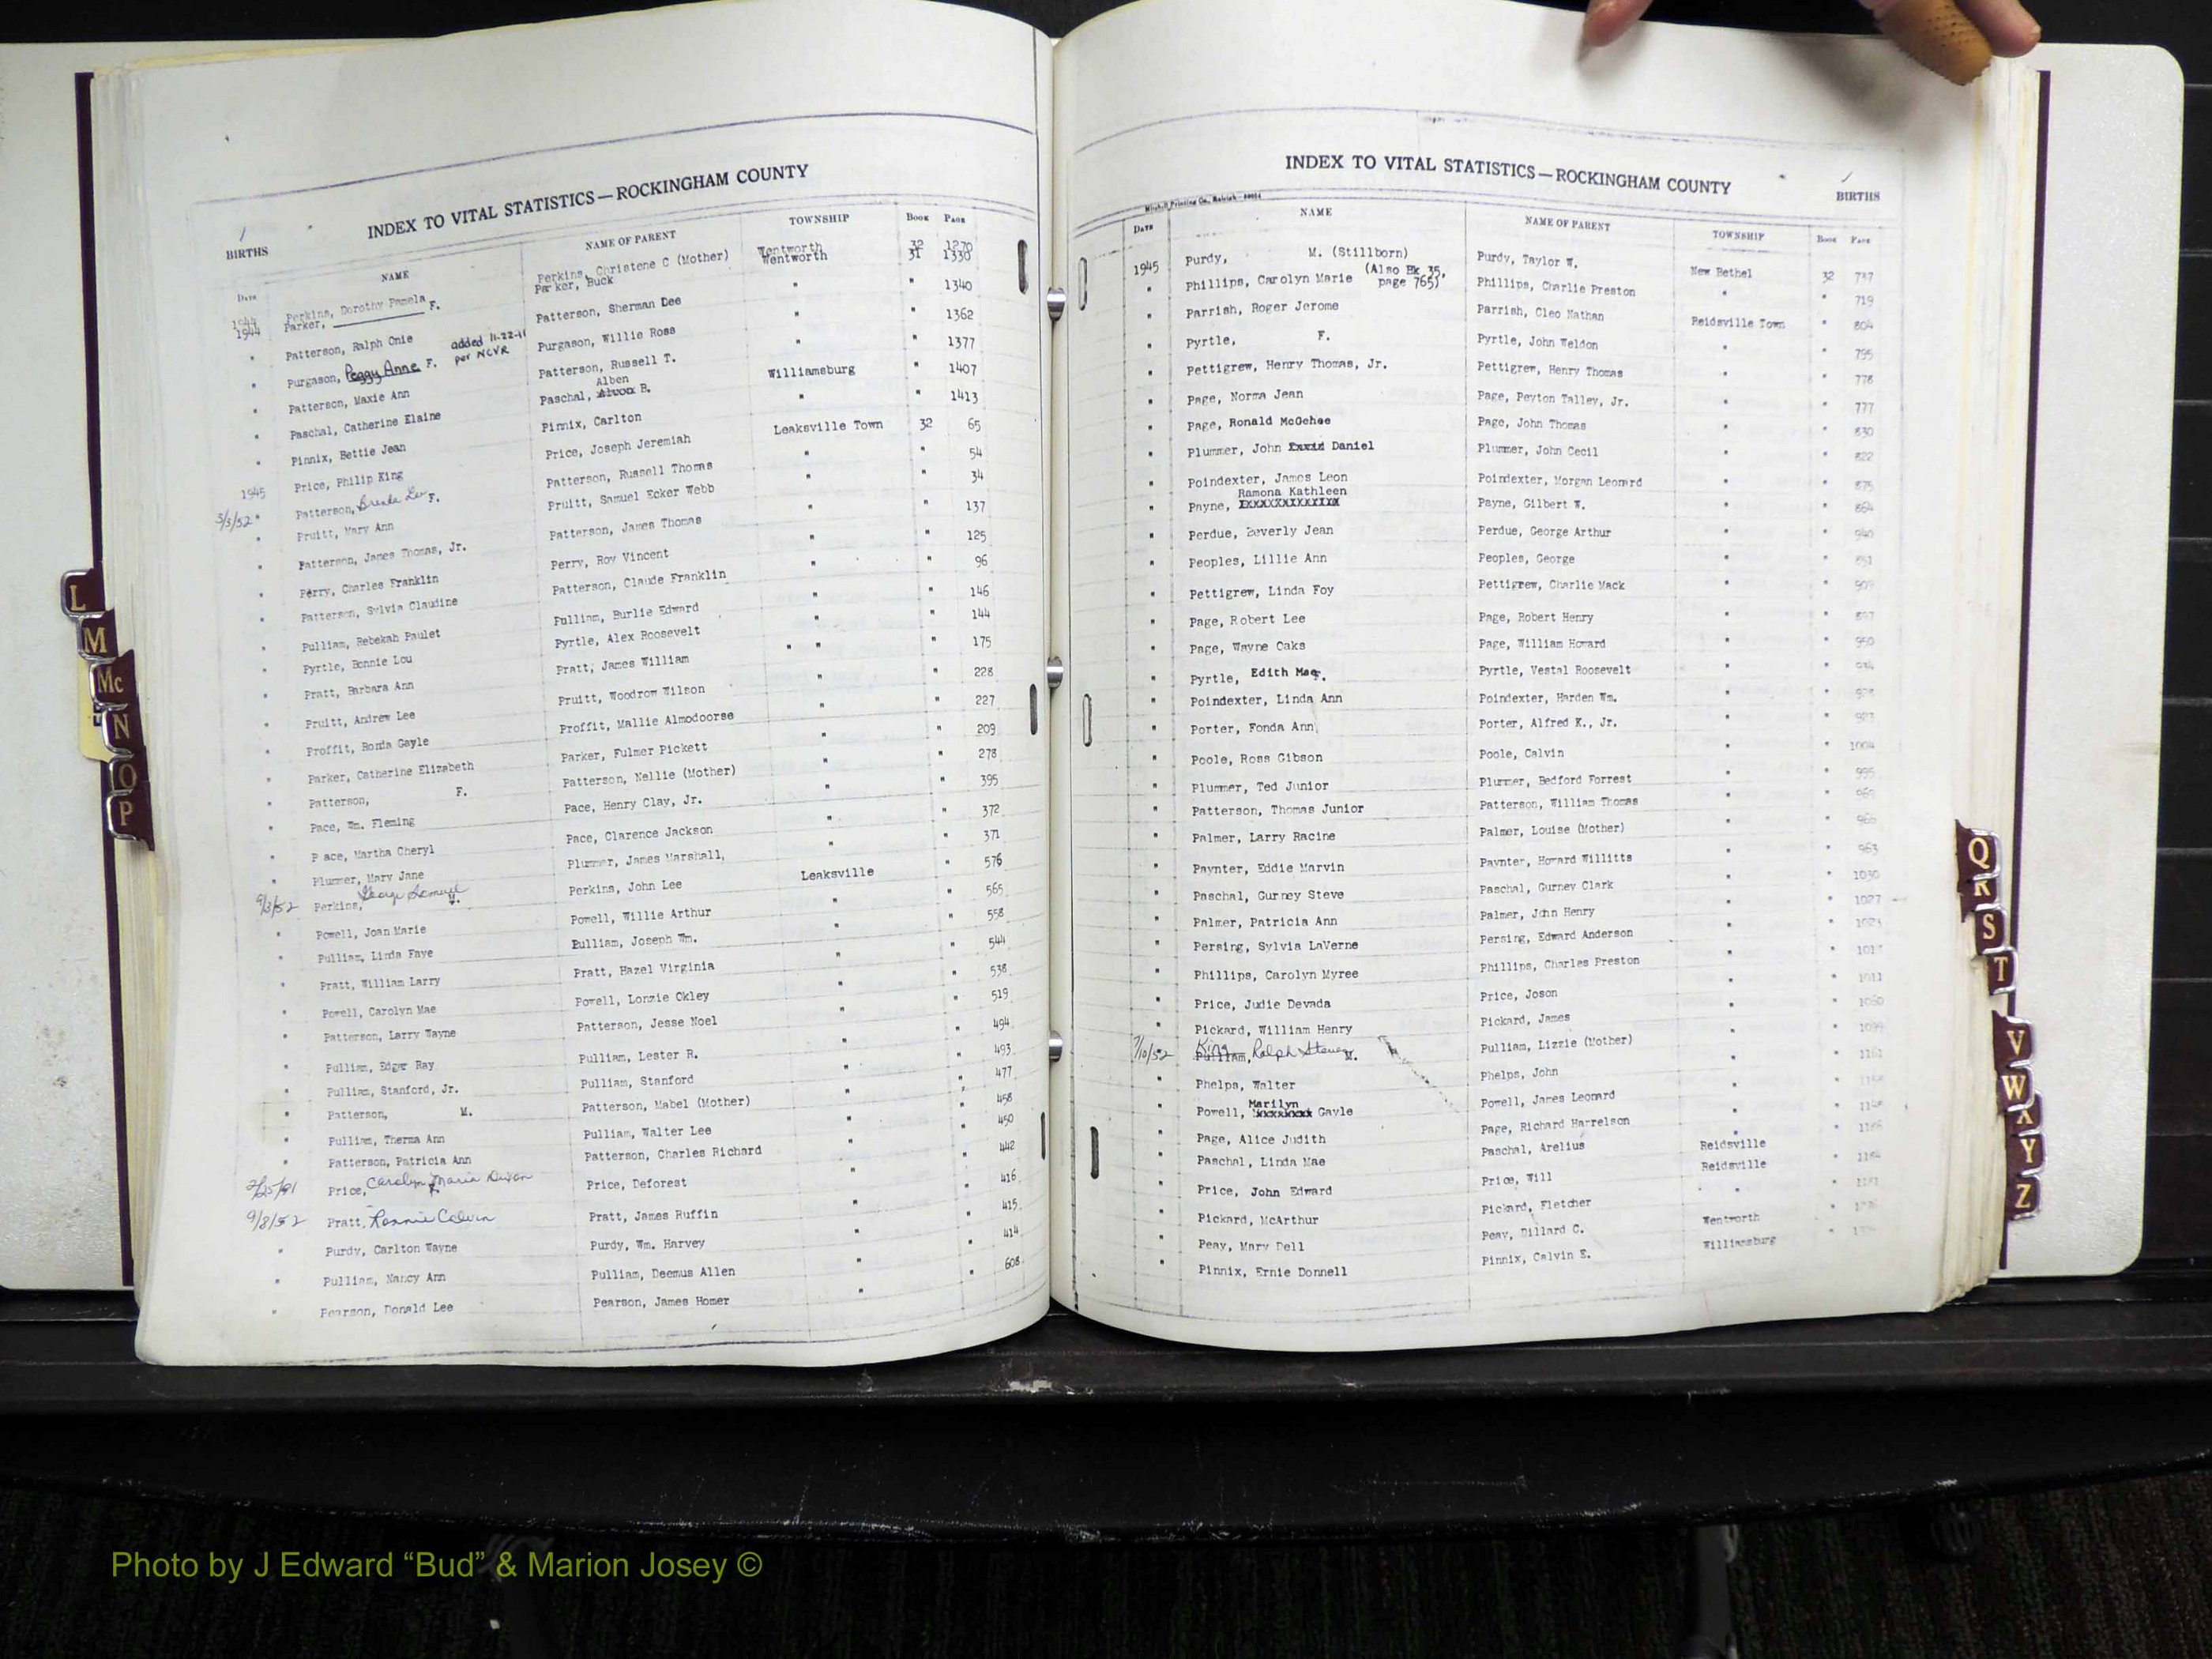 INDEX TO VITAL STATISTICS—ROCKINGHAM COUNTY
BIRTHS
DATE NAME NAME OF PARENT TOWNSHIP BOOK PAGE
1944 Perkins, Dorothy Pamela Perkins, Christene C (Mother) Wentworth 32 1270
1944 Parker, F. Parker, Buck Wentworth 31 1330
" Patterson, Ralph Onie Patterson, Sherman Dee " " 1340
" Purgason, Peggy Anne F. added 11-22-11 per NCVR Purgason, Willie Ross " " 1362
" Patterson, Maxie Ann Patterson, Russell T. " " 1377
" Paschal, Catherine Elaine Paschal, Alben B. Williamsburg " 1407
" Pinnix, Bettie Jean Pinnix, Carlton " " 1413
1945 Price, Philip King Price, Joseph Jeremiah Leaksville Town 32 65
3/3/52 " Patterson, Brenda Lee F. Patterson, Russell Thomas " " 54
" Pruitt, Mary Ann Pruitt, Samuel Ecker Webb " " 34
" Patterson, James Thomas, Jr. Patterson, James Thomas " " 137
" Perry, Charles Franklin Perry, Roy Vincent " " 125
" Patterson, Sylvia Claudine Patterson, Claude Franklin " " 96
" Pulliam, Rebekah Paulet Pulliam, Burlie Edward " " 146
" Pyrtle, Bonnie Lou Pyrtle, Alex Roosevelt " " 144
" Pratt, Barbara Ann Pratt, James William " " " 175
" Pruitt, Andrew Lee Pruitt, Woodrow Wilson " " 228
" Proffit, Ronda Gayle Proffit, Mallie Almodoorse " " 227
" Parker, Catherine Elizabeth Parker, Fulmer Pickett " " 209
" Patterson, F. Patterson, Nellie (Mother) " " 278
" Pace, Wm. Fleming Pace, Henry Clay, Jr. " " 395
" Pace, Martha Cheryl Pace, Clarence Jackson " " 372
" Plummer, Mary Jane Plummer, James Marshall, " " 371
9/3/52 Perkins, George Samuel M. Perkins, John Lee Leaksville " 576
" Powell, Joan Marie Powell, Willie Arthur " " 565
" Pulliam, Linda Faye Bulliam, Joseph Wm. " " 558
" Pratt, William Larry Pratt, Hazel Virginia " " 544
" Powell, Carolyn Mae Powell, Lonzie Okley " " 538
" Patterson, Larry Wayne Patterson, Jesse Noel " " 519
" Pulliam, Edgar Ray Pulliam, Lester R. " " 494
" Pulliam, Stanford, Jr. Pulliam, Stanford " " 493
" Patterson, M. Patterson, Mabel (Mother) " " 477
" Pulliam, Therma Ann Pulliam, Walter Lee " " 458
" Patterson, Patricia Ann Patterson, Charles Richard " " 450
2/25/91 Price, Carolyn Maria Dixon Price, Deforest " " 442
9/8/52 Pratt, Ronnie Calvin Pratt, James Ruffin " " 416
" Purdy, Carlton Wayne Purdy, Wm. Harvey " " 415
" Pulliam, Nancy Ann Pulliam, Deemus Allen " " 414
" Pearson, Donald Lee Pearson, James Homer " " 608
INDEX TO VITAL STATISTICS—ROCKINGHAM COUNTY
BIRTHS
Mitchell Printing Co., Raleigh
DATE NAME NAME OF PARENT TOWNSHIP BOOK PAGE
1945 Purdy, M. (Stillborn) Purdy, Taylor W. New Bethel 32 737
" Phillips, Carolyn Marie (Also Bk 35, page 765) Phillips, Charlie Preston " " 719
" Parrish, Roger Jerome Parrish, Cleo Nathan Reidsville Town " 804
" Pyrtle, F. Pyrtle, John Weldon " " 795
" Pettigrew, Henry Thomas, Jr. Pettigrew, Henry Thomas " " 778
" Page, Norma Jean Page, Peyton Talley, Jr. " " 777
" Page, Ronald McGehee Page, John Thomas " " 830
" Plummer, John Daniel Plummer, John Cecil " " 822
" Poindexter, James Leon Poindexter, Morgan Leonard " " 875
" Payne, Ramona Kathleen Payne, Gilbert W. " " 864
" Perdue, Beverly Jean Perdue, George Arthur " " 940
" Peoples, Lillie Ann Peoples, George " "
" Pettigrew, Linda Foy Pettigrew, Charlie Mack " "
" Page, Robert Lee Page, Robert Henry " " 897
" Page, Wayne Oaks Page, William Howard " " 950
" Pyrtle, Edith Mae F. Pyrtle, Vestal Roosevelt " "
" Poindexter, Linda Ann Poindexter, Harden Wm. " "
" Porter, Fonda Ann Porter, Alfred K., Jr. " "
" Poole, Ross Gibson Poole, Calvin " " 1004
" Plummer, Ted Junior Plummer, Bedford Forrest " " 995
" Patterson, Thomas Junior Patterson, William Thomas " "
" Palmer, Larry Racine Palmer, Louise (Mother) " "
" Paynter, Eddie Marvin Paynter, Howard Willitts " " 963
" Paschal, Gurney Steve Paschal, Gurney Clark " " 1030
" Palmer, Patricia Ann Palmer, John Henry " " 1027
" Persing, Sylvia LaVerne Persing, Edward Anderson " " 1023
" Phillips, Carolyn Myree Phillips, Charles Preston " "
" Price, Judie Devada Price, Joson " " 1011
" Pickard, William Henry Pickard, James " "
7/10/52 King Pulliam, Ralph Steven M. Pulliam, Lizzie (Mother) " "
" Phelps, Walter Phelps, John " "
" Powell, Marilyn Gayle Powell, James Leonard " "
" Page, Alice Judith Page, Richard Harrelson " "
" Paschal, Linda Mae Paschal, Arelius Reidsville "
" Price, John Edward Price, Will Reidsville "
" Pickard, McArthur Pickard, Fletcher " " "
" Peay, Mary Dell Peay, Dillard C. Wentworth "
" Pinnix, Ernie Donnell Pinnix, Calvin E. Williamsburg "
L
M
Mc
N
O
P
Q
R
S
T
V
W
X
Y
Z
Photo by J Edward “Bud” & Marion Josey ©